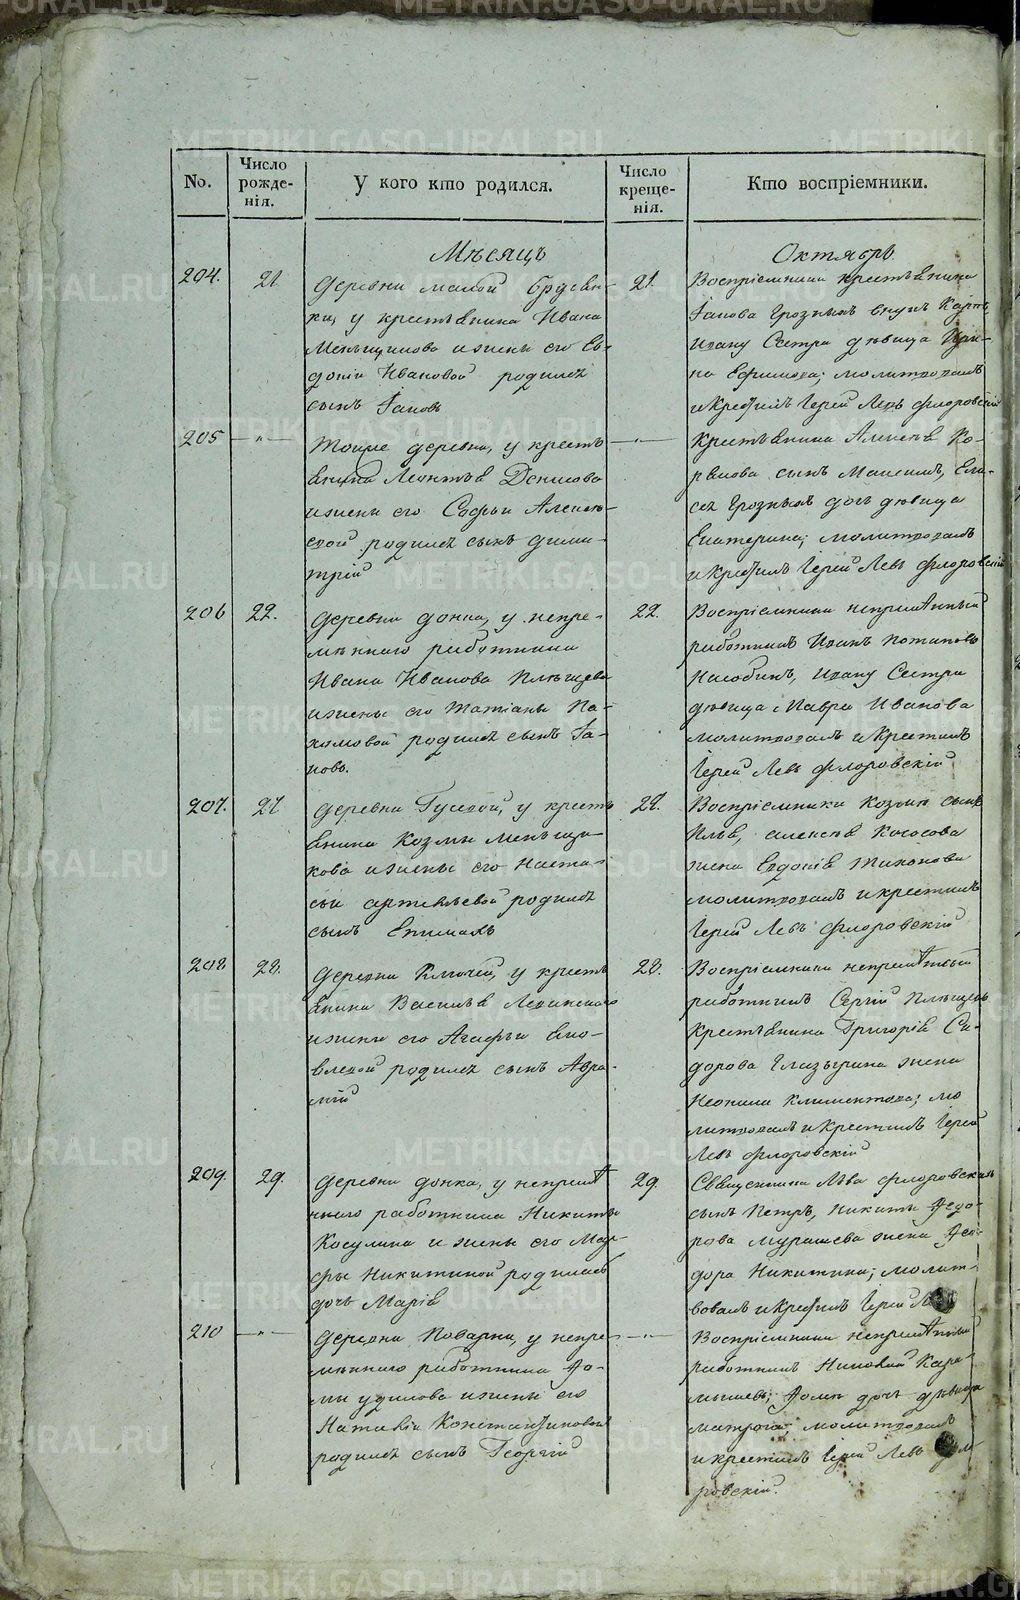 No.
Число рожде-нія.
У кого кто родился.
Число креще-нія.
Кто воспріемники.
Мѣсяцъ
Октябрь
204.
21.
Деревни малой
ки, у крестьянина Ивана
Меньщикова и жены его Ев-
докіи Ивановой родился
сынъ Іаковъ
21.
Воспріемники крестьянина
Іакова Грозныхъ внукъ Карпъ,
Ивану Сестра дѣвица Ири-
на Ефимова; молитвовалъ
и крестилъ Іерей Левъ Флоровскій
205
— " —
Тойже деревни, у кресть
янина Леонтья Денисова
и жены его Софьи Алексѣ-
евой родился сынъ Дими-
трій
— " —
Крестьянина Алексѣя Ко-
рякова сынъ Максимъ, Ели-
сея Грозныхъ дочь дѣвица
Екатерина; молитвовалъ
и крестилъ Іерей Левъ Флоровскій
206
22.
Деревни Донка, у непре-
мѣннаго работника
Ивана Иванова Плѣщева
и жены его Татіаны Па-
хомовой родился сынъ Іа-
ковъ.
22.
Воспріемники непремѣнный
работникъ Иванъ Потаповъ
Насобинъ, Ивану Сестра
дѣвица Мавра Иванова
молитвовалъ и крестилъ
Іерей Левъ Флоровскій
207.
27
Деревни Гусевой, у кресть
янина Козмы Меньщи-
кова и жены его Наста-
сьи Артемьевой родился
сынъ Епимахъ
27.
Воспріемники Козмы сынъ
Илья, Алексѣя Кососова
жена Евдокія Тихонова
молитвовалъ и крестилъ
Іерей Левъ Флоровскій
208
28.
Деревни Ключей, у кресть
янина Василья Левинскаго
и жены его Агафьи Яко-
влевой родился сынъ Авра-
мій
28.
Воспріемники непремѣнный
работникъ Сергій Плѣщевъ
крестьянина Григорія Си-
дорова Глазырина жена
Неонила Климентова; мо
литвовалъ и крестилъ Іерей
Левъ Флоровскій
209.
29.
Деревни Донка, у непремѣ
ннаго работника Никиты
Косулина и жены его Мар-
фы Никитиной родилась
дочь Марія
29.
Священника Льва Флоровскаго
сынъ Петръ, Никиты Федо-
рова Мурашева жена Фео-
дора Никитина; молит-
вовалъ и крестилъ Іерей
210
— " —
Деревни Поварни, у непре-
мѣннаго работника Фо-
мы Удилова и жены его
Наталіи Константиновой
родился сынъ Георгій
— " —
Воспріемники непремѣнный
работникъ Николай Кара-
мышевъ; Фомы дочь дѣвица
Матрона; молитвовалъ
и крестилъ Іерей Левъ Фло-
ровскій.
METRIKI.GASO-URAL.RU